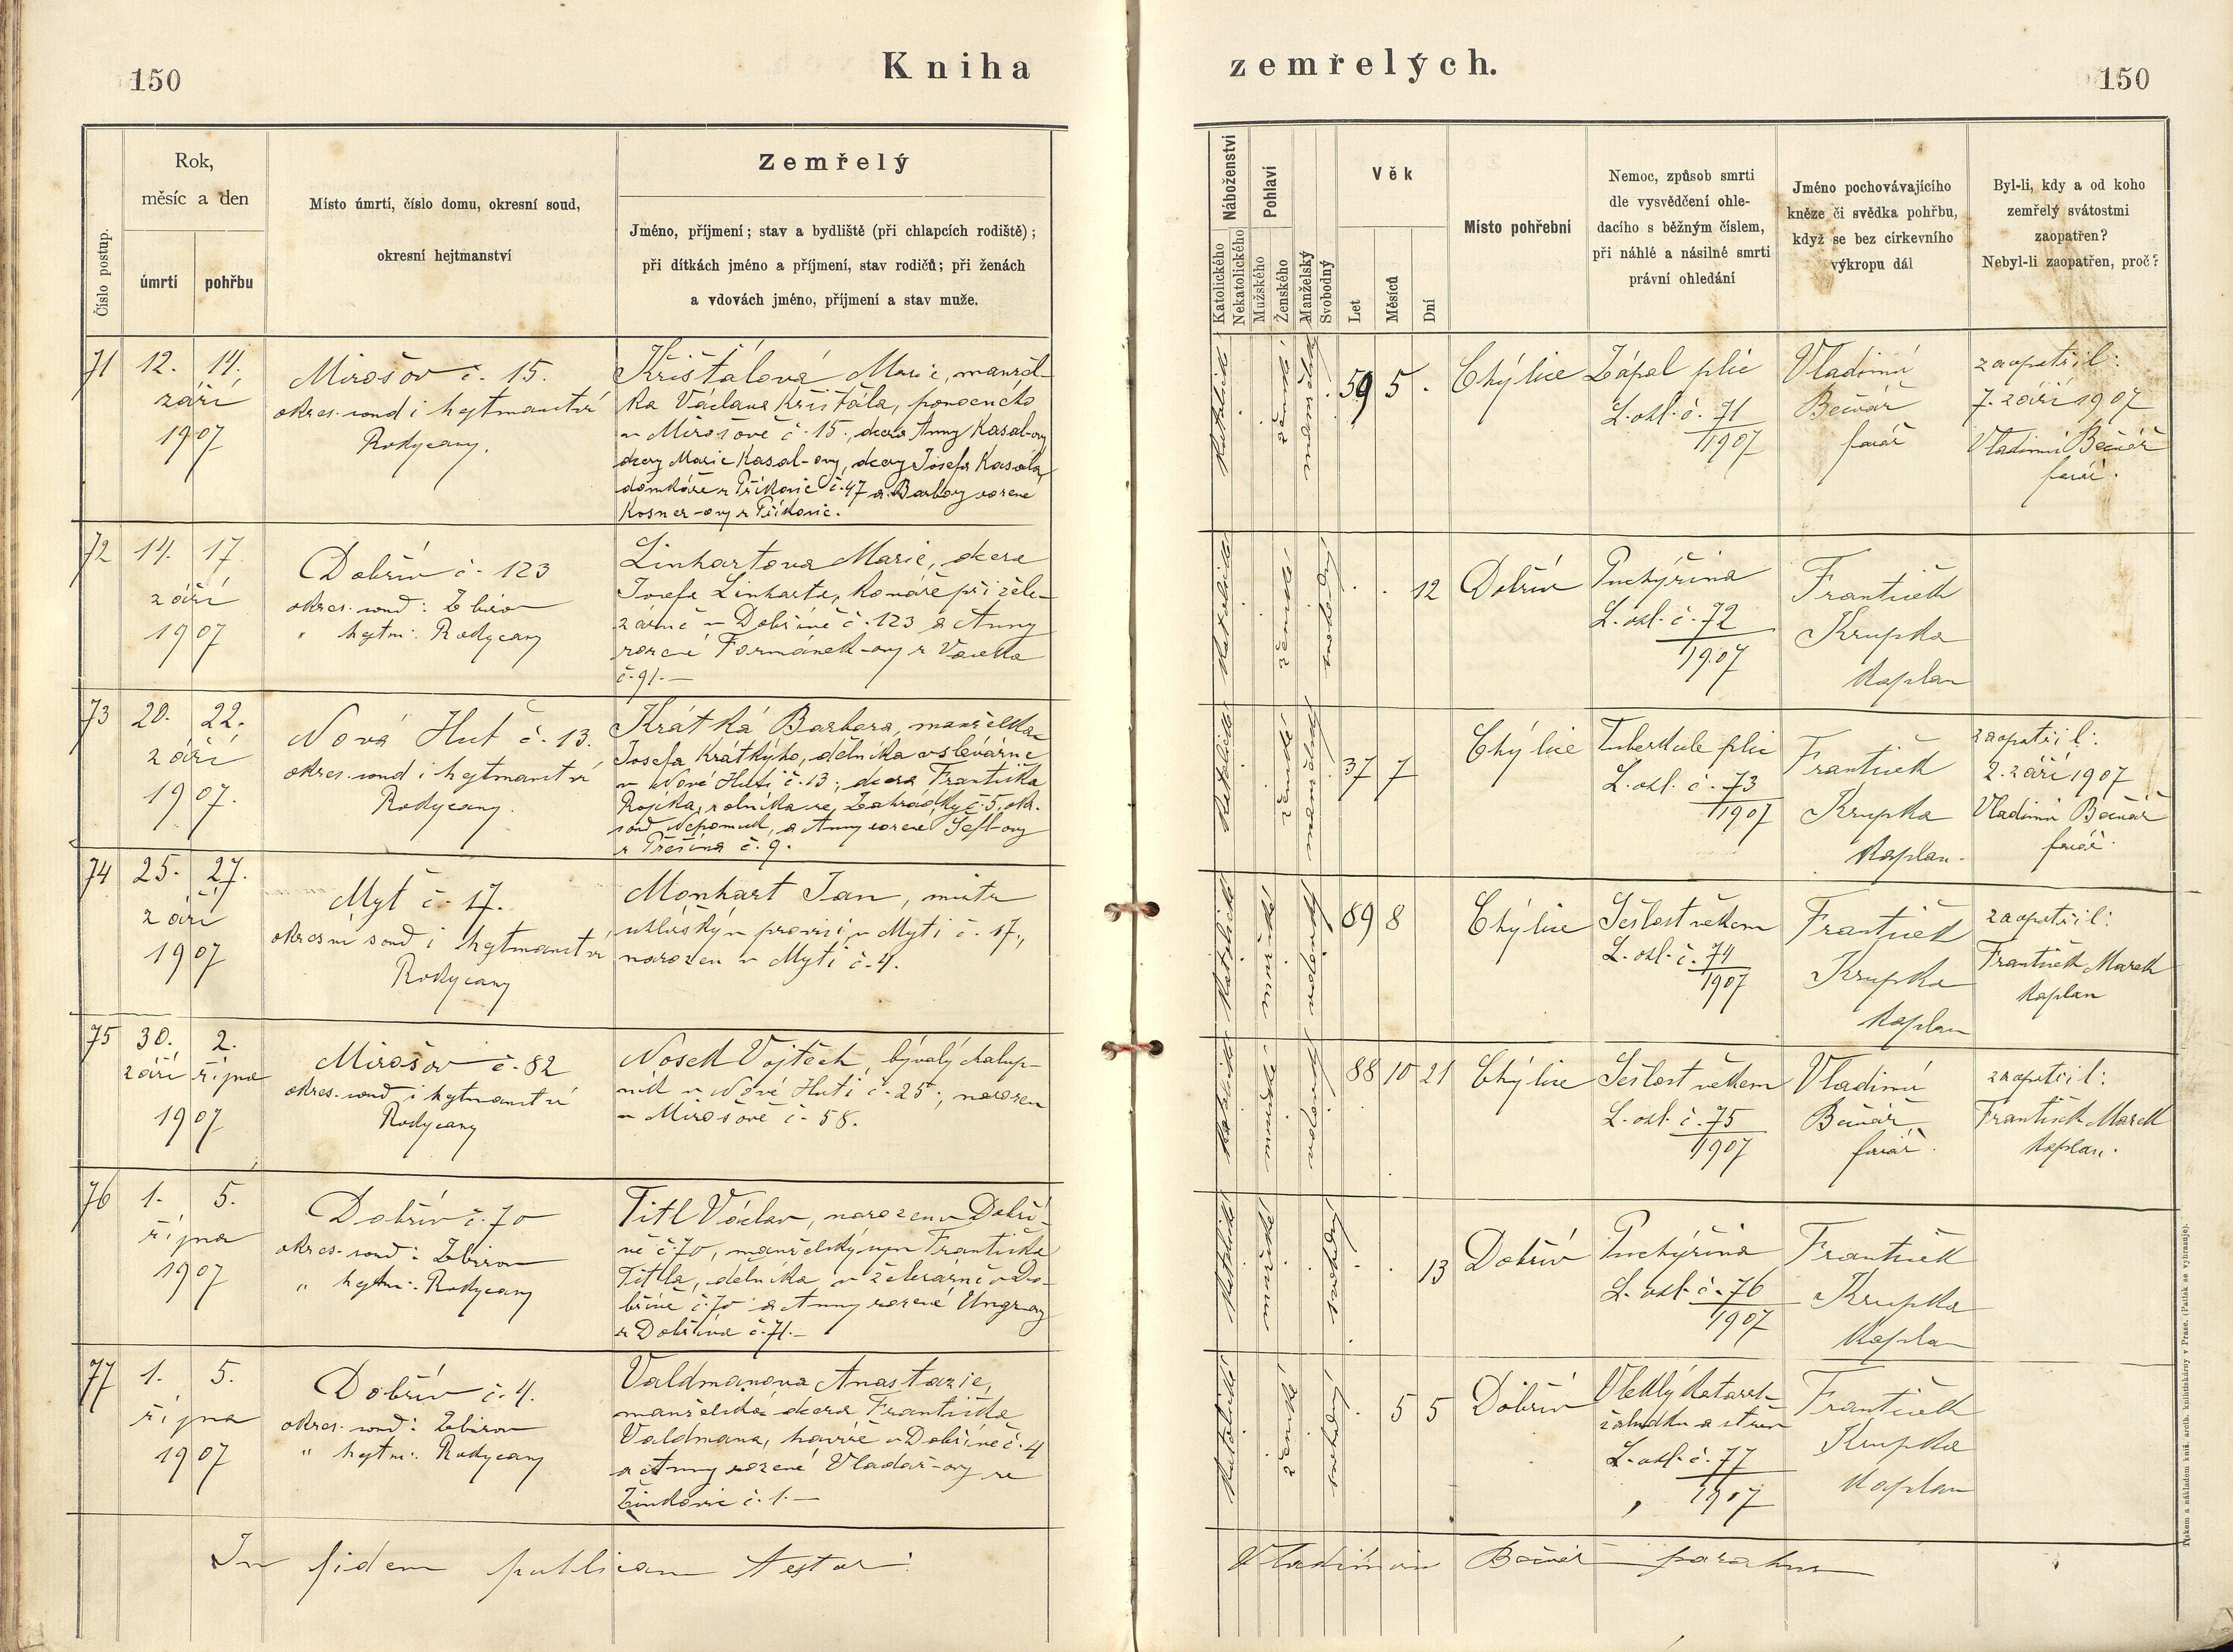 150
Kniha
zemřelých.
150
Číslo postup.
Rok,
měsíc a den
úmrtí
pohřbu
Místo úmrtí, číslo domu, okresní soud,
okresní hejtmanství
Zemřelý
Jméno, příjmení; stav a bydliště (při chlapcích rodiště);
při dítkách jméno a příjmení, stav rodičů; při ženách
a vdovách jméno, příjmení a stav muže.
Náboženství
Katolického
Nekatolického
Pohlaví
Mužského
Ženského
Manželský
Svobodný
Věk
Let
Měsíců
Dní
Místo pohřební
Nemoc, způsob smrti
dle vysvědčení ohle-
dacího s běžným číslem,
při náhlé a násilné smrti
právní ohledání
Jméno pochovávajícího
kněze či svědka pohřbu,
když se bez církevního
výkropu dál
Byl-li, kdy a od koho
zemřelý svátostmi
zaopatřen?
Nebyl-li zaopatřen, proč?
71
12. 14.
září
1907
Mirošov č. 15.
okres. soud i hejtmanství
Rokycany.
Křišťálová Marie, manžel-
ka Václava Křišťála,
v Mirošově č. 15., dcera Anny Kasal-ovy
dcery Marie Kasal-ovy, dcery Josefa Kasala,
domkáře z Příkosic č. 47 a Barbory rozené
Kosner-ovy z Příkosic.
katolické
ženské
manželská
59 5
Chýlice
Zápal plic
L. ohl. č. 71
1907
Vladimír
Bečvář
farář
zaopatřil:
7. září 1907
Vladimír Bečvář
farář.
72
14. 17.
září
1907
Dobřív č. 123
okres. soud: Zbirov
" hejtm: Rokycany
Linhartova Marie, dcera
Josefa Linharta, kováře při žele-
zárně v Dobřívě č. 123 a Anny
rozené Formánek-ovy z
č. 91.—
katolické
ženské
svobodný
12
Dobřív
Puchýřina
L. ohl. č. 72
1907
František
Krupka
kaplan
73
20. 22.
září
1907.
Nová Huť č. 13.
okres. soud i hejtmanství
Rokycany.
Krátká Barbora, manželka
Josefa Krátkýho, dělníka v slévárně
v Nové Huti č. 13; dcera Františka
rolníka ze Zahrádky č. 5. okr.
soud Nepomuk, a Anny rozené Šefl-ovy
z č. 9.
katolické
ženské
manželský
37 7
Chýlice
Tuberkule plic
L. ohl. č. 73
1907
František
Krupka
kaplan.
zaopatřil:
2. září 1907
Vladimír Bečvář
farář.
74
25. 27.
září
1907
Myť č. 17.
okresní soud i hejtmanství
Rokycany
Monhart Jan, mistr
uhlířský v provisi v Myti č. 17.,
narozen v Myti č. 4.
katolické
mužské
vdovský
89 8
Chýlice
Sešlost věkem
L. ohl. č. 74
1907
František
Krupka
kaplan
zaopatřil:
František Marek
kaplan
75
30. 2.
září října
1907
Mirošov č. 82
okres. soud i hejtmanství
Rokycany
Nosek Vojtěch, bývalý chalup-
ník v Nové Huti č. 25, narozen
v Mirošově č. 58.
katolické
mužské
vdovský
88 10 21
Chýlice
Sešlost věkem
L. ohl. č. 75
1907
Vladimír
Bečvář
farář.
zaopatřil:
František Marek
kaplan.
76
1. 5.
října
1907
Dobřív č. 70
okres. soud: Zbirov
" hejtm: Rokycany
Titl Václav, narozen v Dobří-
vě č. 70, manželský syn Františka
Titla, dělníka v železárně v Do-
břívě č. 70 a Anny rozené Ungrovy
z Dobříva č. 71.—
katolické
mužské
svobodný
13
Dobřív
Puchýřina
L. ohl. č. 76
1907
František
Krupka
kaplan
77
1. 5.
října
1907
Dobřív č. 4.
okres. soud: Zbirov
" hejtm: Rokycany
Valdmanova Anastazie,
manželská dcera Františka
Valdmana, havíře v Dobřívě č. 4
a Anny rozené Vladař-ovy ze
č. 1.—
katolické
ženské
svobodný
5 5
Dobřív
Vleklý katarrh
žaludku a střev
L. ohl. č. 77
1907
František
Krupka
kaplan
In fidem publicam testor:
Vladimír Bečvář parochus
Tiskem a nákladem kníž. arcib. knihtiskárny v Praze. (Patisk se vyhrazuje).